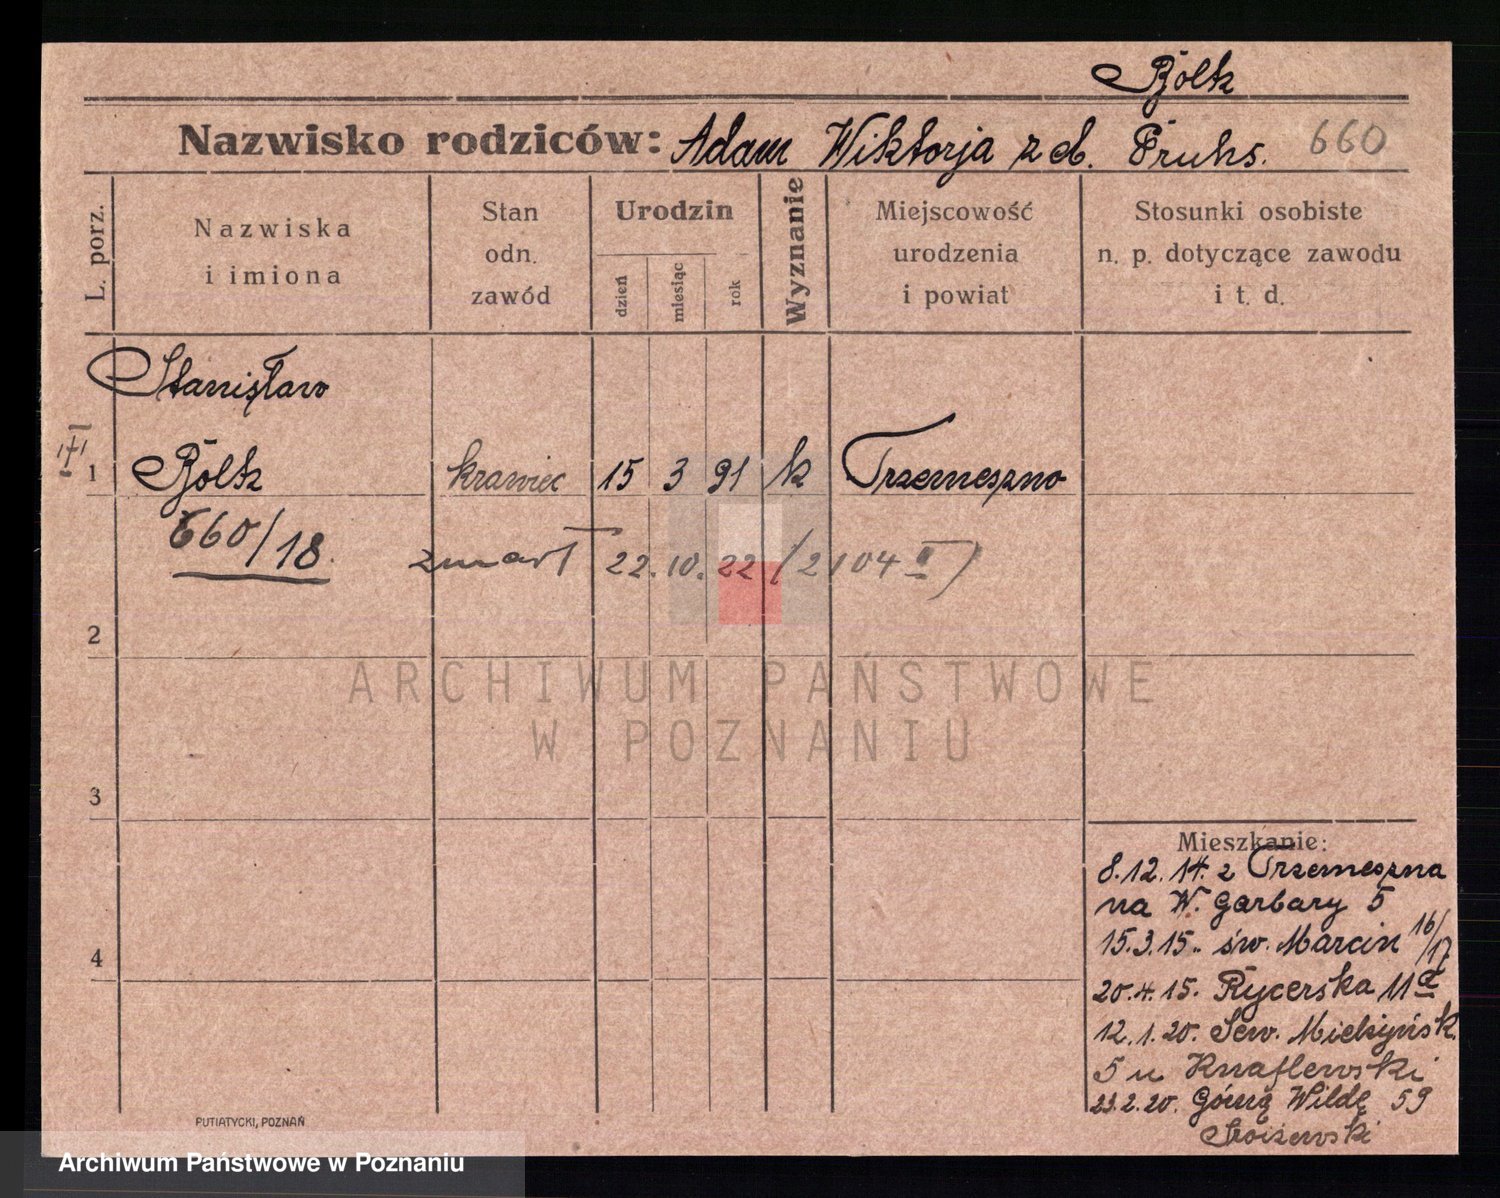 Bölk
Nazwisko rodziców: Adam Wiktorja z d. Pruhs. 660
L. porz.
Nazwiska
i imiona
Stan
odn.
zawód
Urodzin
dzień
miesiąc
rok
Wyznanie
Miejscowość
urodzenia
i powiat
Stosunki osobiste
n. p. dotyczące zawodu
i t. d.
Stanisław
1 Bölk krawiec 15 3 91 k Trzemeszno
660/18. zmarł 22.10.22 (2104 II)
2
ARCHIWUM PAŃSTWOWE
W POZNANIU
3
4
Mieszkanie:
8.12.14. z Trzemeszna
na W. Garbary 5
15.3.15. św. Marcin 16/17
20.4.15. Rycerska 11a
12.1.20. Sew. Mielżyńsk.
5 u Knaflewski
23.2.20. Górną Wildę 59
PUTIATYCKI, POZNAŃ
Archiwum Państwowe w Poznaniu